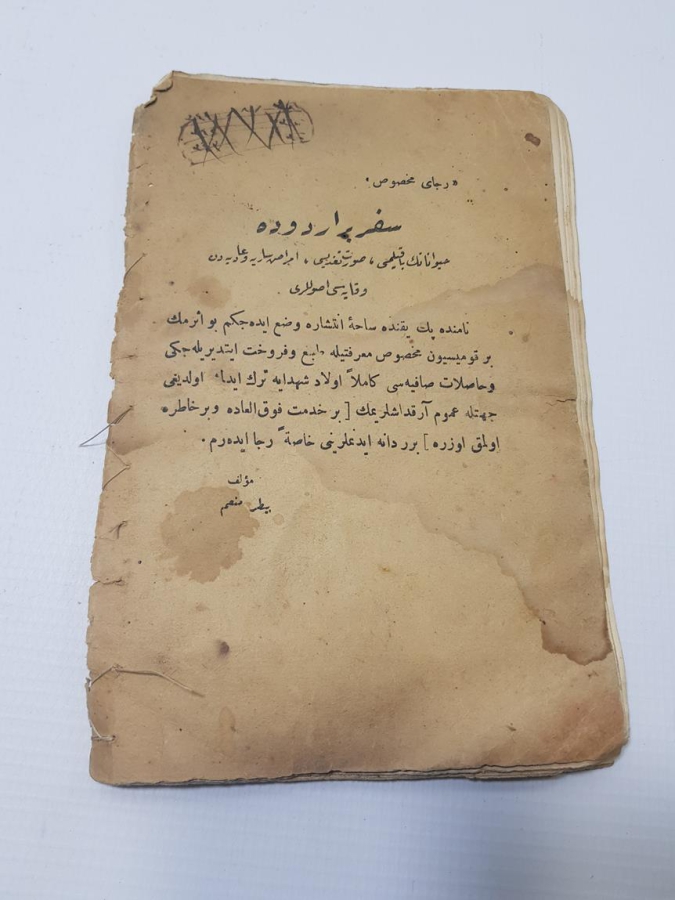 « رجای مخصوص »
سفربر اردوده
حیواناتك باقیلمی، صورت تغدیسی، امراض ساریه و عادیه دن
وقایه سی اصوللری
نامنده پك یقنده ساحهٔ انتشاره وضع ایده جكم بو اثرمك
بر قومیسیون مخصوص معرفتیله طبع و فروخت ایتدیریله جكی
و حاصلات صافیه سی كاملاً اولاد شهدایه ترك ایدلمش اولدیغی
جهتله عموم آرقداشلریمك [ بر خدمت فوق العاده و بر خاطره
اولمق اوزره ] برر دانه ایدنملرینی خاصةً رجا ایده رم .
مؤلف
بیطر منعم